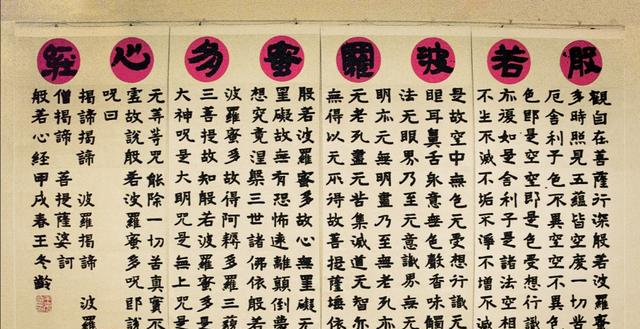 般若波羅蜜多心經
觀自在菩薩行深般若波羅蜜
多時照見五蘊皆空度一切苦
厄舍利子色不異空空不異色
色即是空空即是色受想行識
亦復如是舍利子是諸法空相
不生不滅不垢不淨不增不減
是故空中無色无受想行識无
眼耳鼻舌身意無色聲香味觸
法无眼界乃至无意識界無无
明亦无無明盡乃至無老死亦
无老死盡无苦集滅道无智亦
無得以无所得故菩提薩埵依
般若波羅蜜多故心無罣礙无
罣礙故無有恐怖遠離顛倒夢
想究竟涅槃三世諸佛依般若
波羅蜜多故得阿耨多羅三藐
三菩提故知般若波羅蜜多是
大神咒是大明咒是無上咒是
无等等咒能除一切苦真實不
虛故說般若波羅蜜多咒即說
咒曰
揭諦揭諦 波羅揭諦 波羅
僧揭諦 菩提薩婆訶
般若心經甲戌春王冬齡